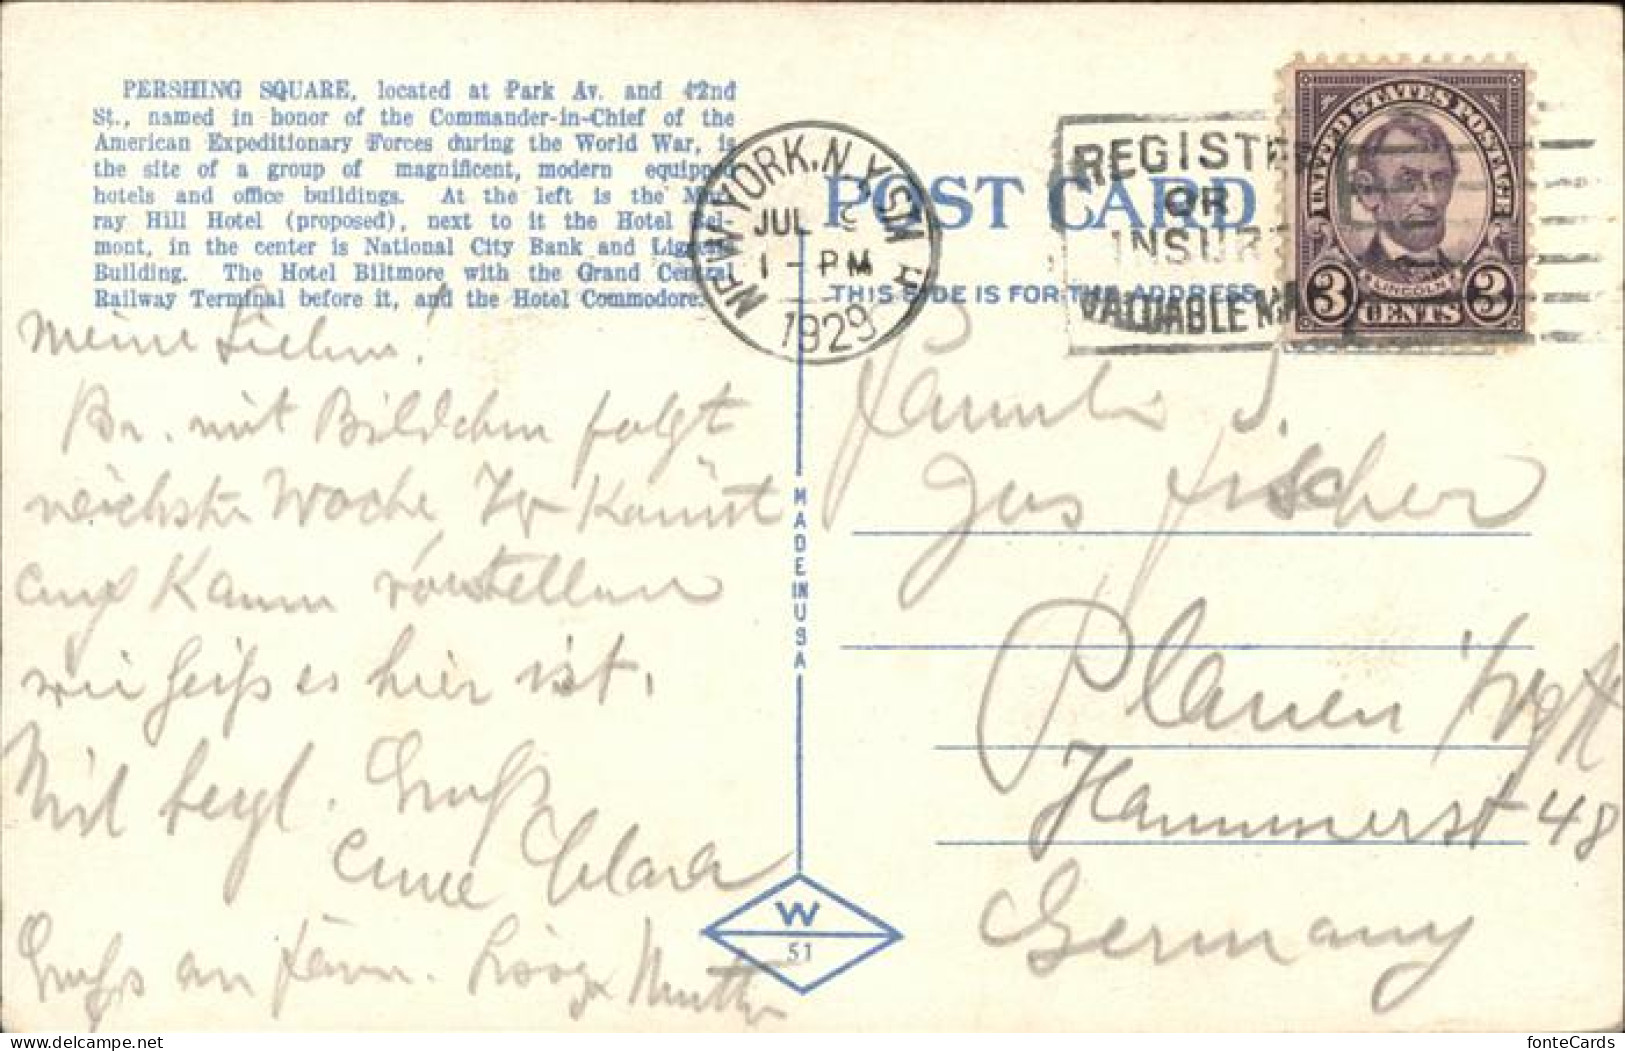 PERSHING SQUARE, located at Park Av. and 42nd
St., named in honor of the Commander-in-Chief of the
American Expeditionary Forces during the World War, is
the site of a group of magnificent, modern equipped
hotels and office buildings. At the left is the Mur-
ray Hill Hotel (proposed), next to it the Hotel Bel-
mont, in the center is National City Bank and Liggett
Building. The Hotel Biltmore with the Grand Central
Railway Terminal before it, and the Hotel Commodore.
Meine Lieben!
Br. mit Bildchen folgt
nächste Woche Ihr könnt
euch kaum vorstellen
wie heiß es hier ist.
Mit herzl. Gruß
eure Clara
Gruß an
Mutter
NEW YORK, N.Y.
JUL
1 - PM
1929
REGISTE
OR
INSUR
VALUABLE MA
UNITED STATES POSTAGE
LINCOLN
3 CENTS 3
POST CARD
THIS SIDE IS FOR THE ADDRESS
MADE IN USA
W
51
Familie
Gus Fischer
Plauen i/Vgtl
Hammerst 48
Germany
fonteCards